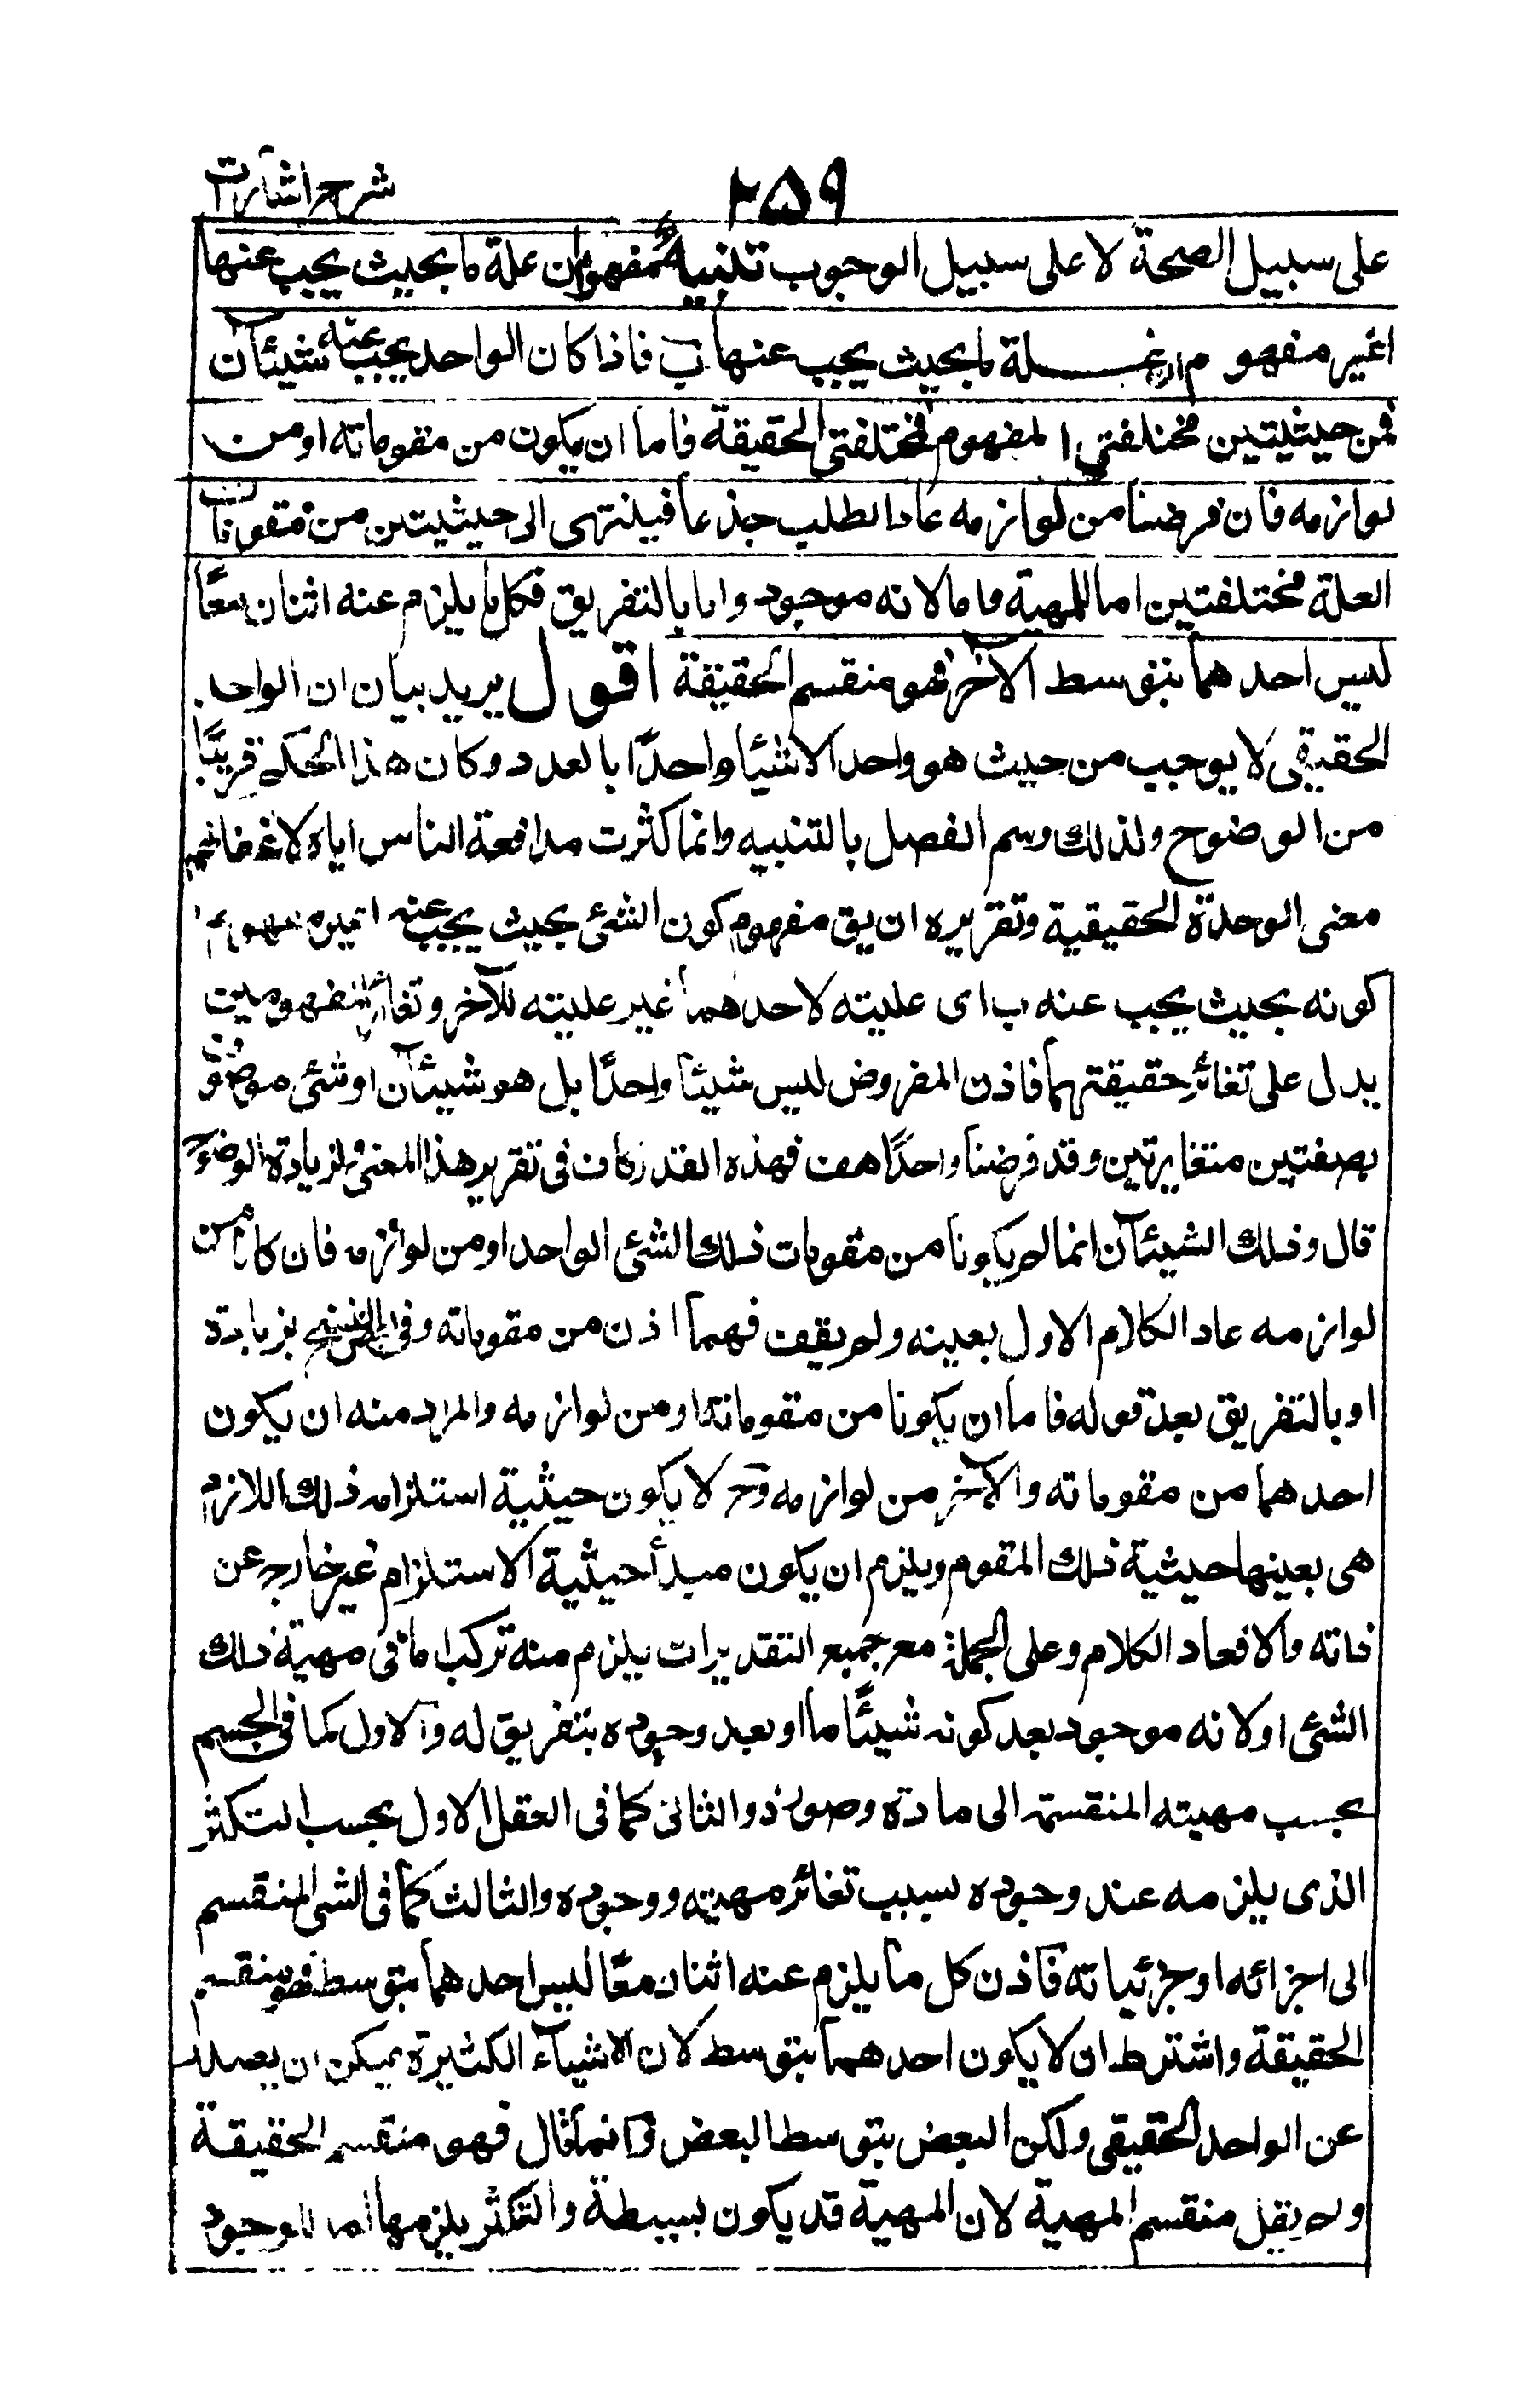 شرح اشارات
۲۵۹
على سبيل الصحة لا على سبيل الوجوب تنبيه مفهوم ان علة ما بحيث يجب عنها
ا غير مفهوم ان علة ما بحيث يجب عنها ب فاذا كان الواحد يجب عنه شيئان
فمن حيثيتين مختلفتى المفهوم مختلفتى الحقيقة فاما ان يكون من مقوماته او من
لوازمه فان فرضنا من لوازمه عاد الطلب جذعا فينتهى الى حيثيتين من مقومات
العلة مختلفتين اما للمهية واما لانه موجود واما بالتفريق فكل ما يلزم عنه اثنان معًا
ليس احدهما بتوسط الآخر فهو منقسم الحقيقة اقول يريد بيان ان الواحد
الحقيقى لا يوجب من حيث هو واحد الا شيئا واحدًا بالعدد وكان هذا الحكم قريبًا
من الوضوح ولذلك وسم الفصل بالتنبيه وانما كثرت مدافعة الناس اياه لاغفالهم
معنى الوحدة الحقيقية وتقريره ان يق مفهوم كون الشئ بحيث يجب عنه ا غير مفهوم
كونه بحيث يجب عنه ب اى عليته لاحدهما غير عليته للآخر وتغائر المفهومين
يدل على تغائر حقيقتهما فاذن المفروض ليس شيئا واحدًا بل هو شيئآن او شئ موصوف
بصفتين متغايرتين وقد فرضنا واحدًا هف فهذه القدر كاف فى تقرير هذا المعنى ولزيادة الوضوح
قال وذلك الشيئآن انما لم يكونا من مقومات ذلك الشئ الواحد او من لوازمه فان كانا من
لوازمه عاد الكلام الاول بعينه ولم يقف فهما اذن من مقوماته وفى بعض النسخ بزيادة
او بالتفريق بعد قوله فاما ان يكونا من مقوماته او من لوازمه والمراد منه ان يكون
احدهما من مقوماته والآخر من لوازمه وح لا يكون حيثية استلزامه ذلك اللازم
هى بعينها حيثية ذلك المقوم ويلزم ان يكون مبدأ حيثية الاستلزام غير خارج عن
ذاته والا فعاد الكلام وعلى الجملة مع جميع التقديرات يلزم منه تركب اما فى مهية ذلك
الشئ او لانه موجود بعد كونه شيئًا ما او بعد وجوده بتفريق له والاول كما فى الجسم
بحسب مهيته المنقسمة الى مادة وصورة والثانى كما فى العقل الاول بحسب التكثر
الذى يلزمه عند وجوده بسبب تغائر مهيته ووجوده والثالث كما فى الشئ المنقسم
الى اجزائه او جزئياته فاذن كل ما يلزم عنه اثنان معًا ليس احدهما بتوسط فهو منقسم
الحقيقة واشترط ان لا يكون احدهما بتوسط لان الاشياء الكثيرة يمكن ان يصدر
عن الواحد الحقيقى ولكن البعض بتوسط البعض وانما قال فهو منقسم الحقيقة
ولم يقل منقسم المهية لان المهية قد يكون بسيطة والتكثر يلزمها اما للوجود